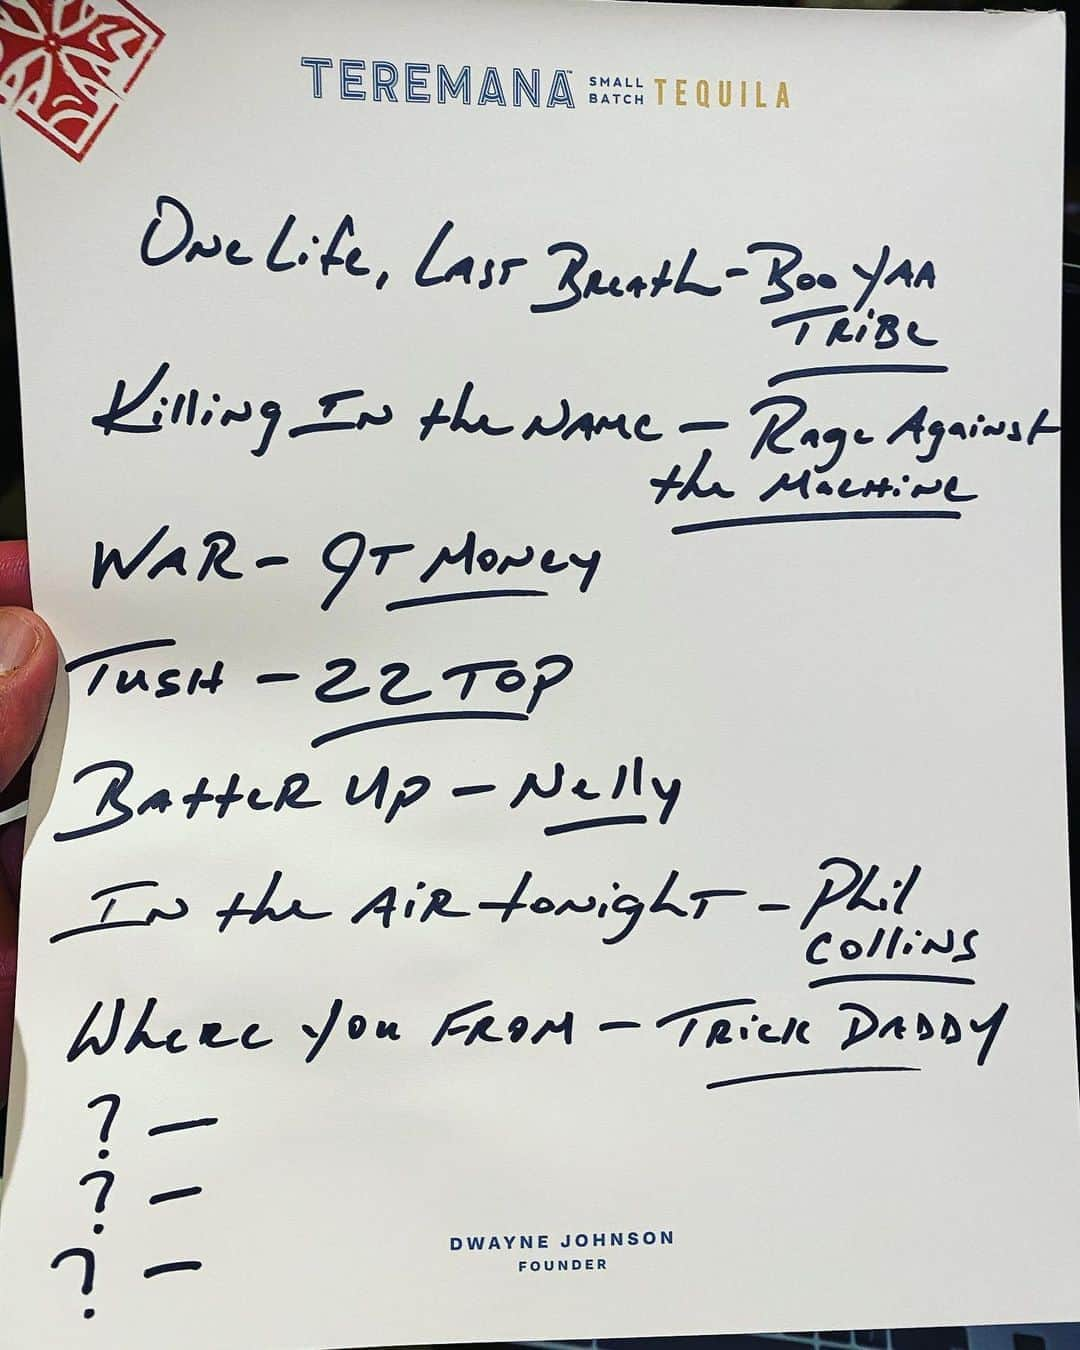 TEREMANA™ SMALL BATCH TEQUILA
One Life, Last Breath - Boo YAA
TRiBe
Killing In the Name - Rage Against
the Machine
WAR - JT Money
Tush - ZZ TOP
Batter Up - Nelly
In the Air tonight - Phil
Collins
Where You From - Trick Daddy
? -
? -
? -
DWAYNE JOHNSON
FOUNDER